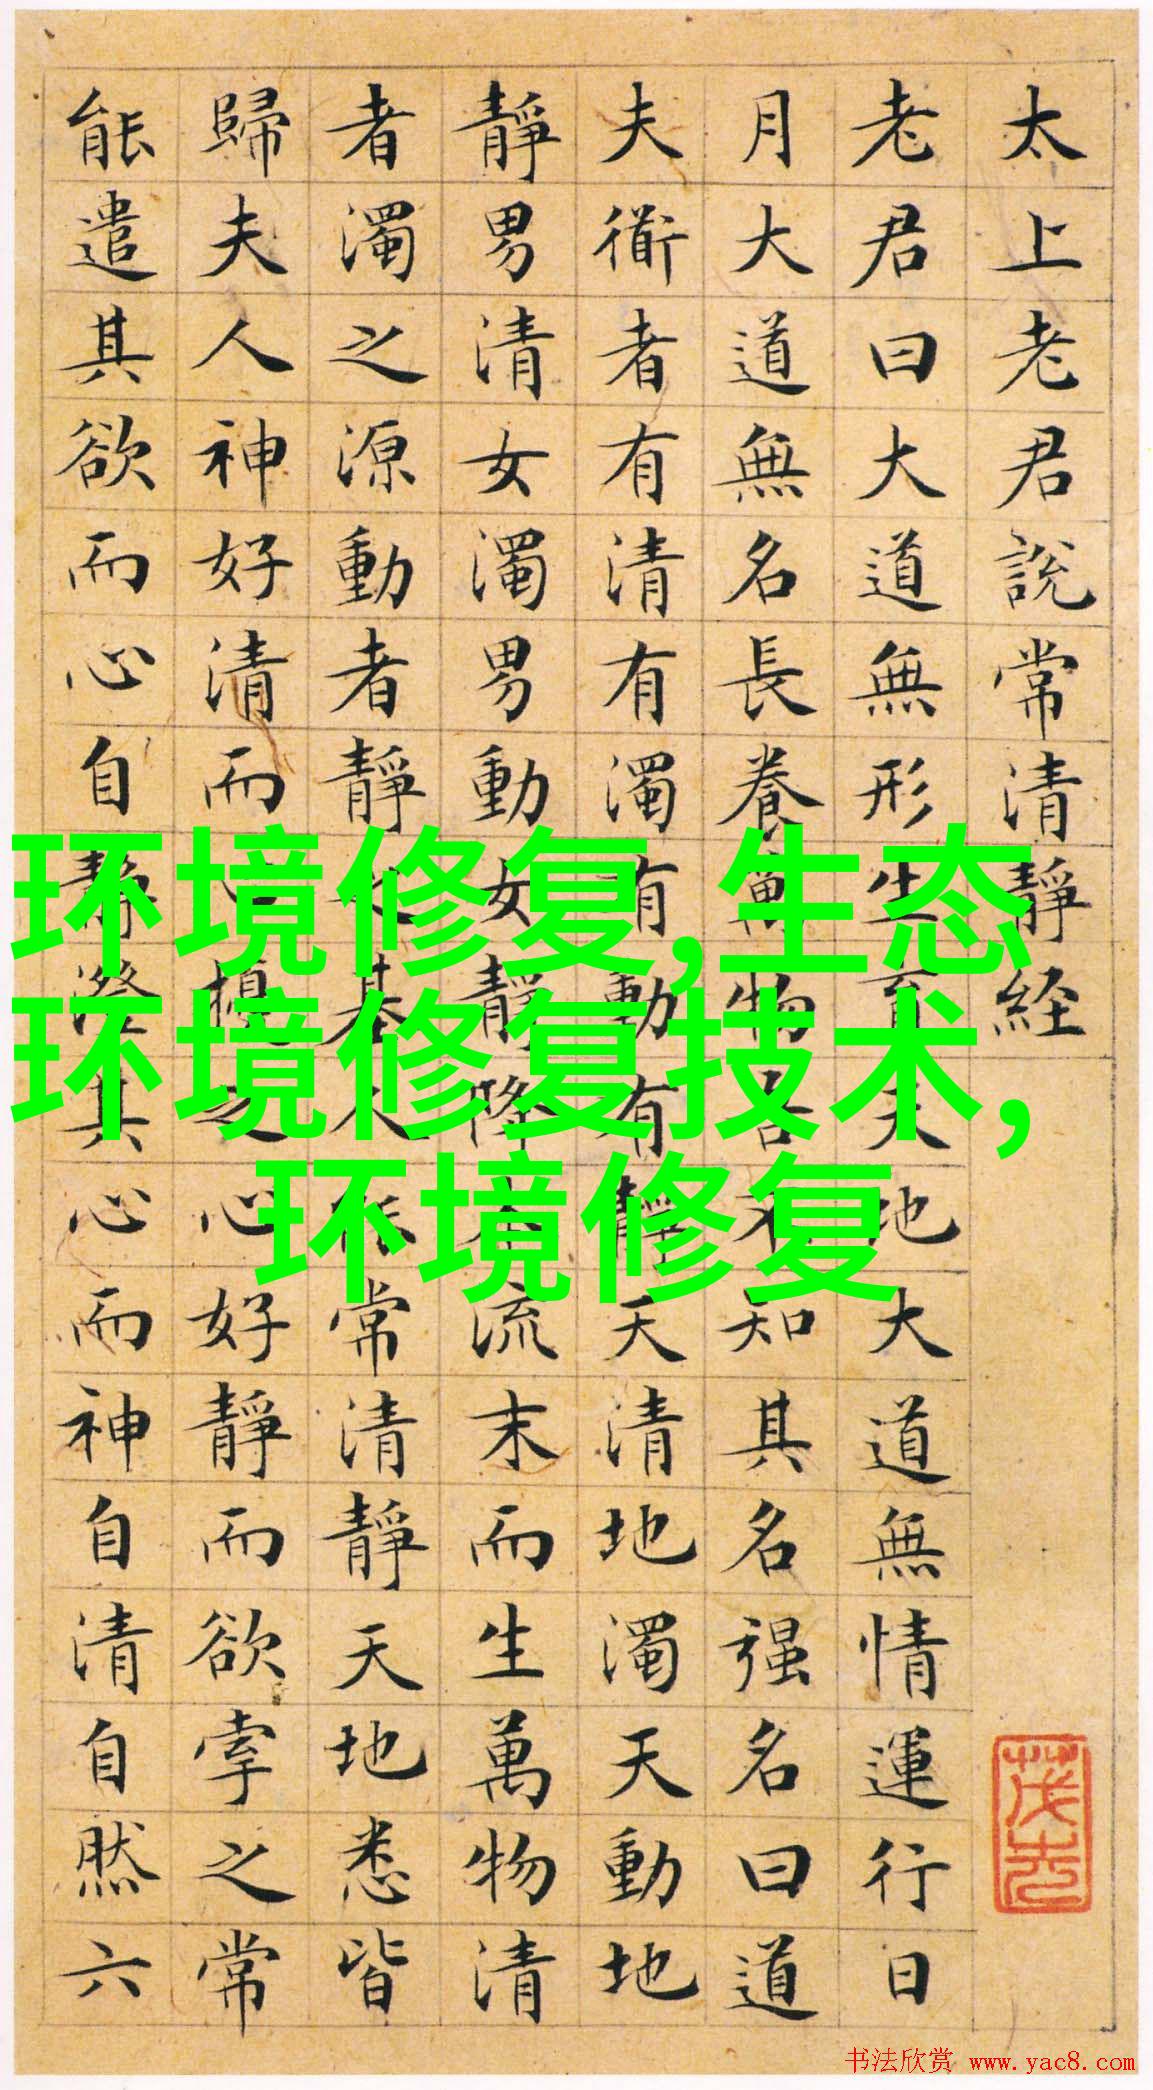 太上老君說常清靜経
老君曰大道無形生育天地大道無情運行日
月大道無名長養萬物吾不知其名强名曰道
夫衜者有清有濁有動有靜天清地濁天動地
靜男清女濁男動女靜降本流末而生萬物清
者濁之源動者靜之基人能常清靜天地悉皆
歸夫人神好清而心擾之心好靜而欲牽之常
能遣其欲而心自靜澄其心而神自清自然六
环境修复,生态
环境修复技术,
环境修复
书法欣赏 www.yac8.com